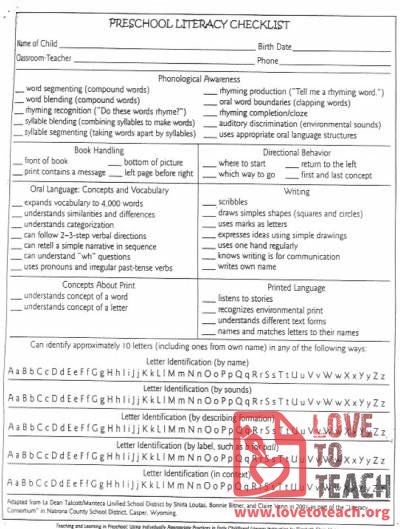 PRESCHOOL LITERACY CHECKLIST
Name of Child Birth Date
Classroom-Teacher Phone
Phonological Awareness
word segmenting (compound words)
word blending (compound words)
rhyming recognition ("Do these words rhyme?")
syllable blending (combining syllables to make words)
syllable segmenting (taking words apart by syllables)
rhyming production ("Tell me a rhyming word.")
oral word boundaries (clapping words)
rhyming completion/cloze
auditory discrimination (environmental sounds)
uses appropriate oral language structures
Book Handling
front of book bottom of picture
print contains a message left page before right
Directional Behavior
where to start return to the left
which way to go first and last concept
Oral Language: Concepts and Vocabulary
expands vocabulary to 4,000 words
understands similarities and differences
understands categorization
can follow 2-3-step verbal directions
can retell a simple narrative in sequence
can understand "wh" questions
uses pronouns and irregular past-tense verbs
Writing
scribbles
draws simple shapes (squares or circles)
uses marks as letters
expresses ideas using simple drawings
uses one hand regularly
knows writing is for communication
writes own name
Concepts About Print
understands concept of a word
understands concept of a letter
Printed Language
listens to stories
recognizes environmental print
understands different text forms
names and matches letters to their names
Can identify approximately 10 letters (including ones from own name) in any of the following ways:
Letter Identification (by name)
AaBbCcDdEeFfGgHhIiJjKkLlMmNnOoPpQqRrSsTtUuVvWwXxYyZz
Letter Identification (by sounds)
AaBbCcDdEeFfGgHhIiJjKkLlMmNnOoPpQqRrSsTtUuVvWwXxYyZz
Letter Identification (by describing formation)
AaBbCcDdEeFfGgHhIiJjKkLlMmNnOoPpQqRrSsTtUuVvWwXxYyZz
Letter Identification (by label, such as a for ball)
AaBbCcDdEeFfGgHhIiJjKkLlMmNnOoPpQqRrSsTtUuVvWwXxYyZz
Letter Identification (in context)
AaBbCcDdEeFfGgHhIiJjKkLlMmNnOoPpQqRrSsTtUuVvWwXxYyZz
LOVE
TO
TEACH
www.lovetoteach.org
Adapted from La Dean Talcott/Manteca Unified School District by Shirla Loutas, Bonnie Bitner, and Claire in 2001 as part of the "Literacy
Consortium" in Natrona County School District, Casper, Wyoming.
Teaching and Learning in Preschool: Using Individually Appropriate Practices in Early Childhood Literacy Instruction by